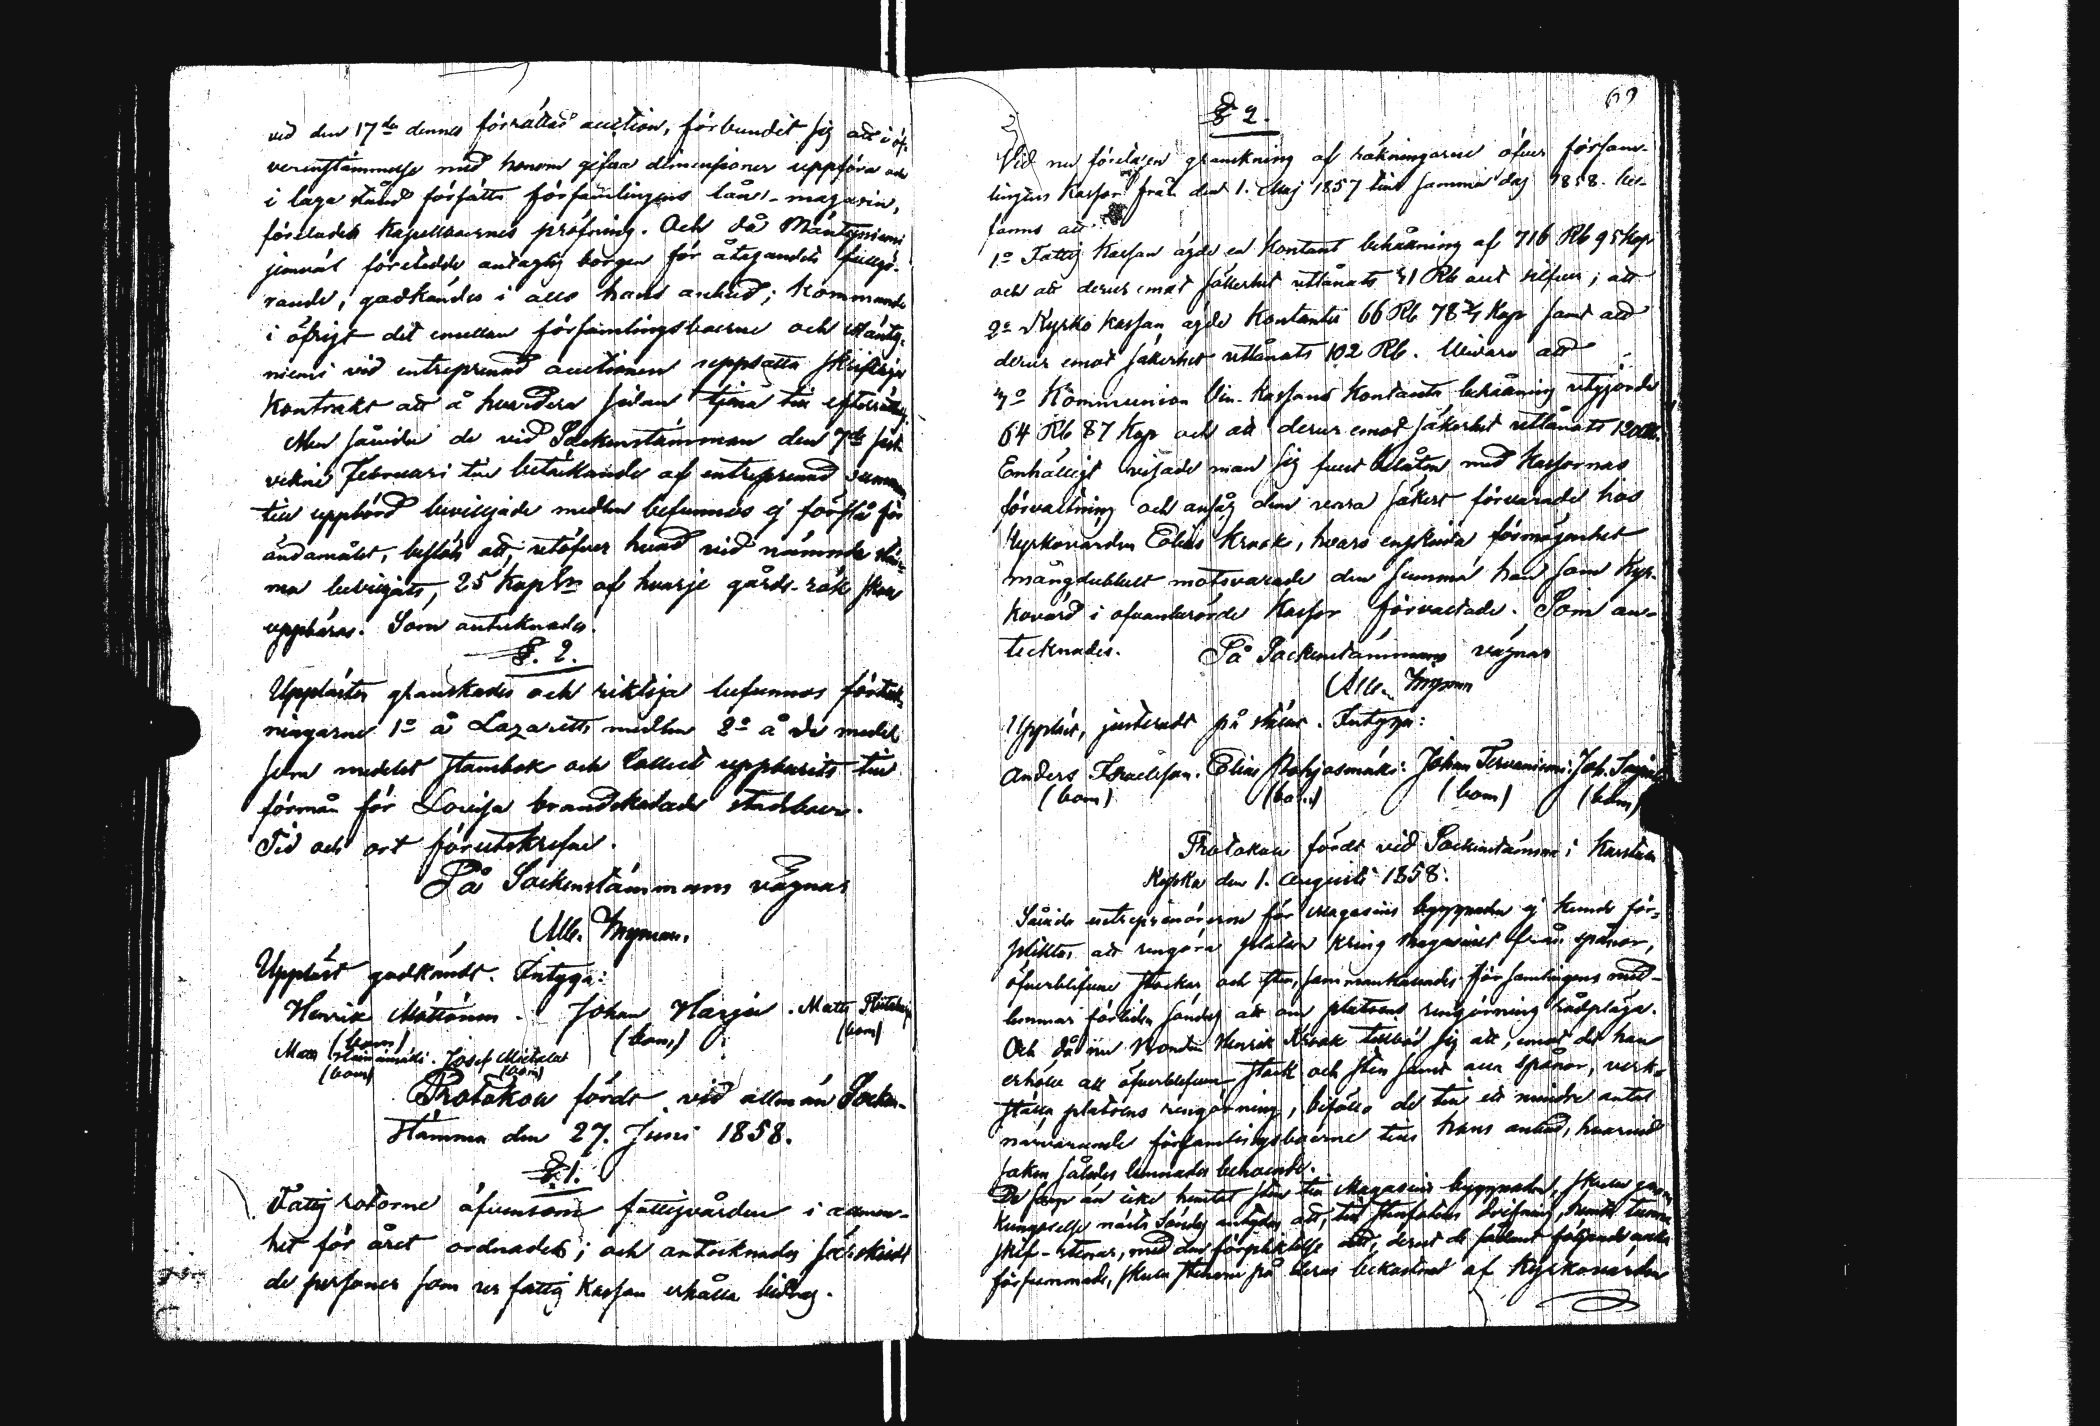 vid den 17de dennes förrättad auction, förbundit sig att i öf-
verensstämmelse med honom gifna dimensioner uppföra och
i laga stånd författa församlingens låne-magasin,
förelades Kapellboernes pröfning. Och då Mäntyniemi
jemväl företedde antaglig borgen för åtagandets fullgö-
rande, godkändes i allo hans anbud; kommande
i öfrigt det emellan församlingsboerne och Mänty-
niemi vid entreprenad auctionen uppsatta skriftliga
Kontrakt att å hvardera sidan tjena till efterrättelse.
Men såvida de vid Sockenstämman den 7de sist-
vikne Februari till betäckande af entreprenad summan
till uppbörd beviljade medlen befunnos ej förslå för
ändamålet, beslöts att, utöfver hvad vid nämnde stäm-
ma beviljats, 25 Kop Sr af hvarje gårds-rök skall
uppbäras. Som antecknades.
§. 2.
Upplästes granskades och riktiga befunnos förteck-
ningarne 1o å Lazaretts medlen 2o å de medel
som medelst stambok och Collect uppburits till
förmån för Lovisa brandskadade stadsboer.
Tid och ort förutskrefne.
På Sockenstämmans vägnar
Alb. Nyman.
Uppläst godkändt. Intyga:
Henrik Möttönen. Johan Harju. Matts
(bom) (bom) (bom)
Matts Josef
(bom) (bom)
Protokoll fördt vid allmän Socken-
stämma den 27. Juni 1858.
§. 1.
Fattig rotorne äfvensom fattigvården i allmän-
het för året ordnades; och antecknades särskildt
de personer som ur fattig Kassan erhålla bidrag.
69
§ 2.
Vid nu företagen granskning af räkningarne öfver försam-
lingens Kassor från den 1. Maj 1857 till samma dag 1858. be-
fanns att
1o Fattig Kassan ägde en Kontant behållning af 716 Rb 95 Kop
och att derur emot säkerhet utlånats 31 Rb allt silfver; att
2o Kyrko Kassan ägde Kontanter 66 Rb 78 3/7 Kop samt att
derur emot säkerhet utlånats 102 Rb. Likaså att
3o Kommunion Vin-Kassans Kontanta behållning utgjorde
64 Rb 87 Kop och att derur emot säkerhet utlånats 120 Rb.
Enhälligt visade man sig fullt belåten med Kassornas
förvaltning och ansåg dem vara säkert förvarade hos
Kyrkovärden Elias Krook, hvars enskilda förmögenhet
mångdubbelt motsvarade den summa han som Kyr-
kovärd i ofvanberörde Kassor förvaltade. Som an-
tecknades. På Sockenstämmans vägnar
Alb. Nyman
Uppläst, justeradt på stället. Intyga:
Anders Israelsson. Elias Pohjasmäki: Johan Tervaniemi: Joh.
(bom) (bom) (bom) (bom)
Protokoll fördt vid Sockenstämma i Karstula
Kyrka den 1. Augusti 1858.
Såvida entreprenörerne för Magasins byggnaden ej kunde för-
pliktas att rengöra platsen kring Magasinet från spånor,
öfverblifvne stockar och sten, sammankallades församlingens med-
lemmar förliden söndag att om platsens rengörning rådpläga.
Och då nu Bonden Henrik Krook tillböd sig att, emot det han
erhölle all öfverblifven stock och sten samt alla spånor, verk-
ställa platsens rengörning, biföllo de till ett mindre antal
närvarande församlingsboerne till hans anbud, hvarvid
saken således lemnades beroende.
De som än icke hemtat sten till Magasins byggnaden, skulle genom
Kungörelse nästa Söndag antydas att, till stenfotens, hemta
skif-stenar, med den förpliktelse att, derest de sådant följande vecka
försummade, skulle stenarne på deras bekostnad af Kyrkovärden